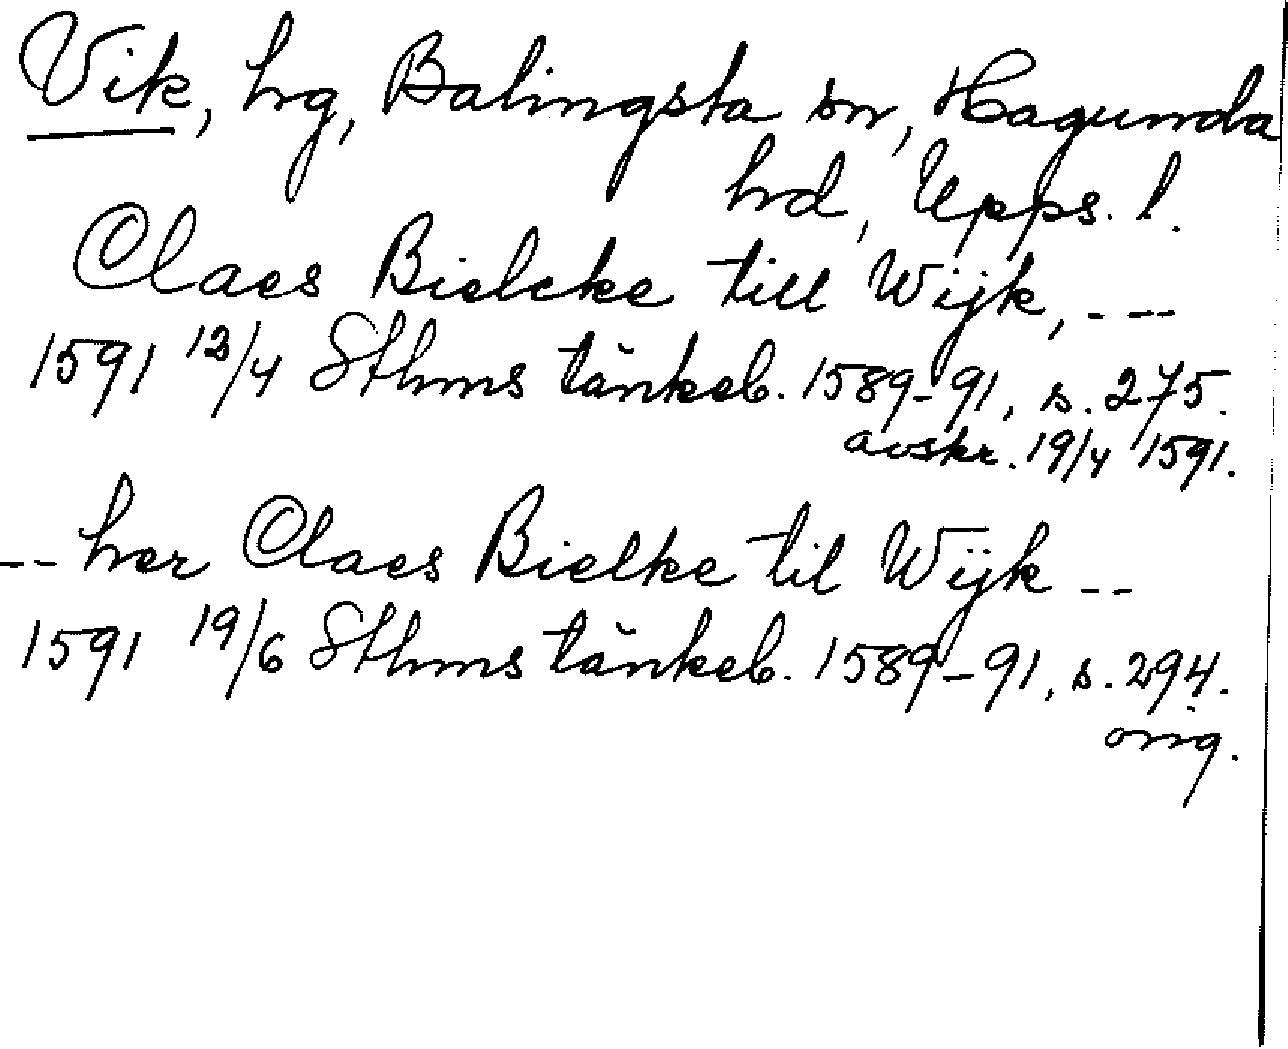 Vik, hrg, Balingsta sn, Hagunda
hrd, Upps. l.
Claes Bielcke till Wijk, - --
1591 12/4 Sthms tänkeb. 1589-91, s. 275.
avskr. 19/4 1591.
-- her Claes Bielke til Wijk --
1591 19/6 Sthms tänkeb. 1589-91, s. 294.
orig.